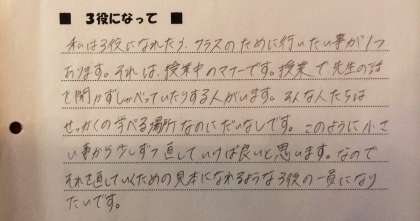 ■ 3役になって ■
私は3役になれたら、クラスのために行いたい事が1つ
あります。それは、授業中のマナーです。授業で先生の話
を聞かずしゃべっていたりする人がいます。そんな人たちは
せっかくの学べる場所なのにだいなしです。このように小さ
い事から少しずつ直していけば良いと思います。なので
それを直していくための見本になれるような3役の一員になり
たいです。